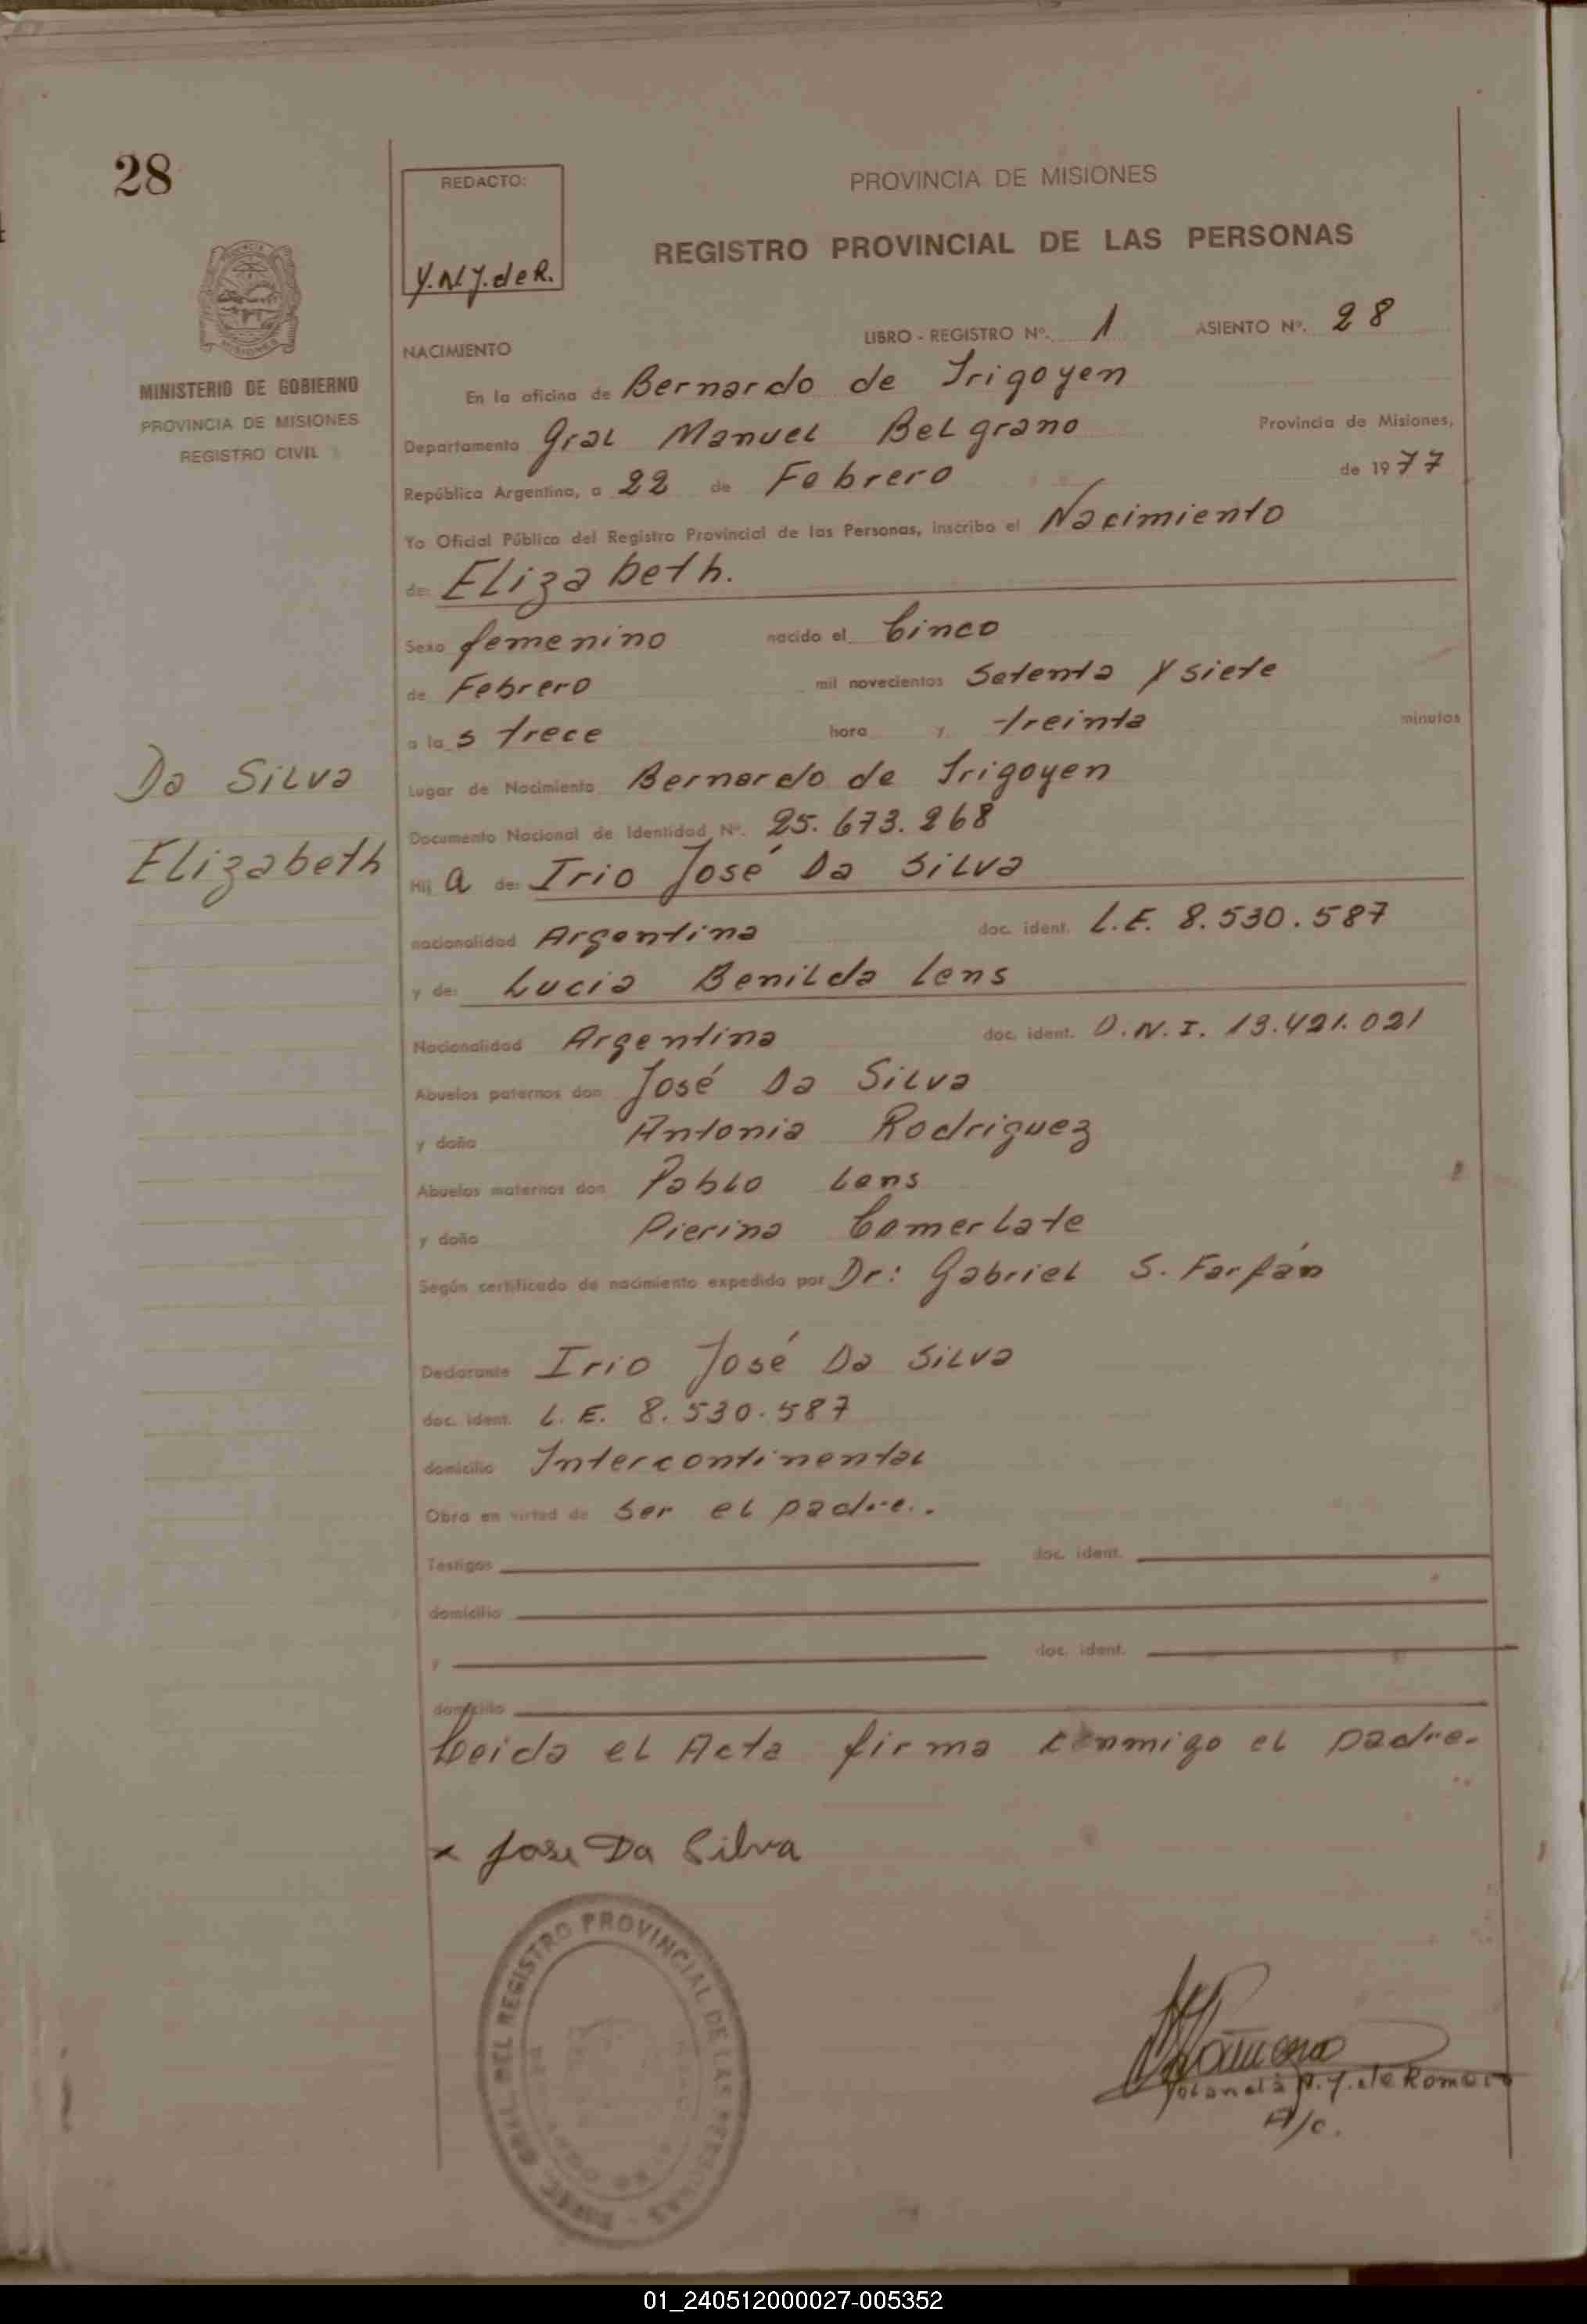 28
REDACTO:
Y.N.Y.deR.
PROVINCIA DE MISIONES
REGISTRO PROVINCIAL DE LAS PERSONAS
MINISTERIO DE GOBIERNO
PROVINCIA DE MISIONES
REGISTRO CIVIL
LIBRO - REGISTRO Nº. 1 ASIENTO Nº. 28
NACIMIENTO
En la oficina de Bernardo de Irigoyen
Departamento Gral Manuel Belgrano Provincia de Misiones,
República Argentina, a 22 de Febrero de 1977
Yo Oficial Público del Registro Provincial de las Personas, inscribo el Nacimiento
de: Elizabeth.
Sexo femenino nacido el Cinco
de Febrero mil novecientos Setenta y siete
a las trece hora y treinta minutos
Lugar de Nacimiento Bernardo de Irigoyen
Documento Nacional de Identidad Nº. 25.673.268
Da Silva
Elizabeth
Hij a de: Irio José Da Silva
nacionalidad Argentina doc. ident. L.E. 8.530.587
y de: Lucia Benilda Lens
Nacionalidad Argentina doc. ident. D.N.I. 13.421.021
Abuelos paternos don José Da Silva
y doña Antonia Rodriguez
Abuelos maternos don Pablo Lens
y doña Pierina Comerlate
Según certificado de nacimiento expedido por Dr: Gabriel S. Farfán
Declarante Irio José Da Silva
doc. ident. L.E. 8.530.587
domicilio Intercontinental
Obra en virtud de ser el padre..
Testigos doc. ident.
domicilio
y doc. ident.
domicilio
Leida el Acta firma conmigo el padre.
x Jose Da Silva
DIREC. GRAL. DEL REGISTRO PROVINCIAL DE LAS PERSONAS
Yolanda N. Y. de Romero
A/c.
01_240512000027-005352